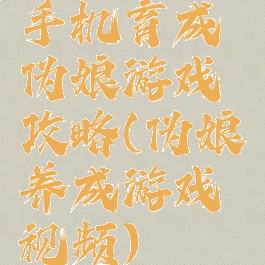 手机育成
伪娘游戏
攻略(伪娘
养成游戏
视频)